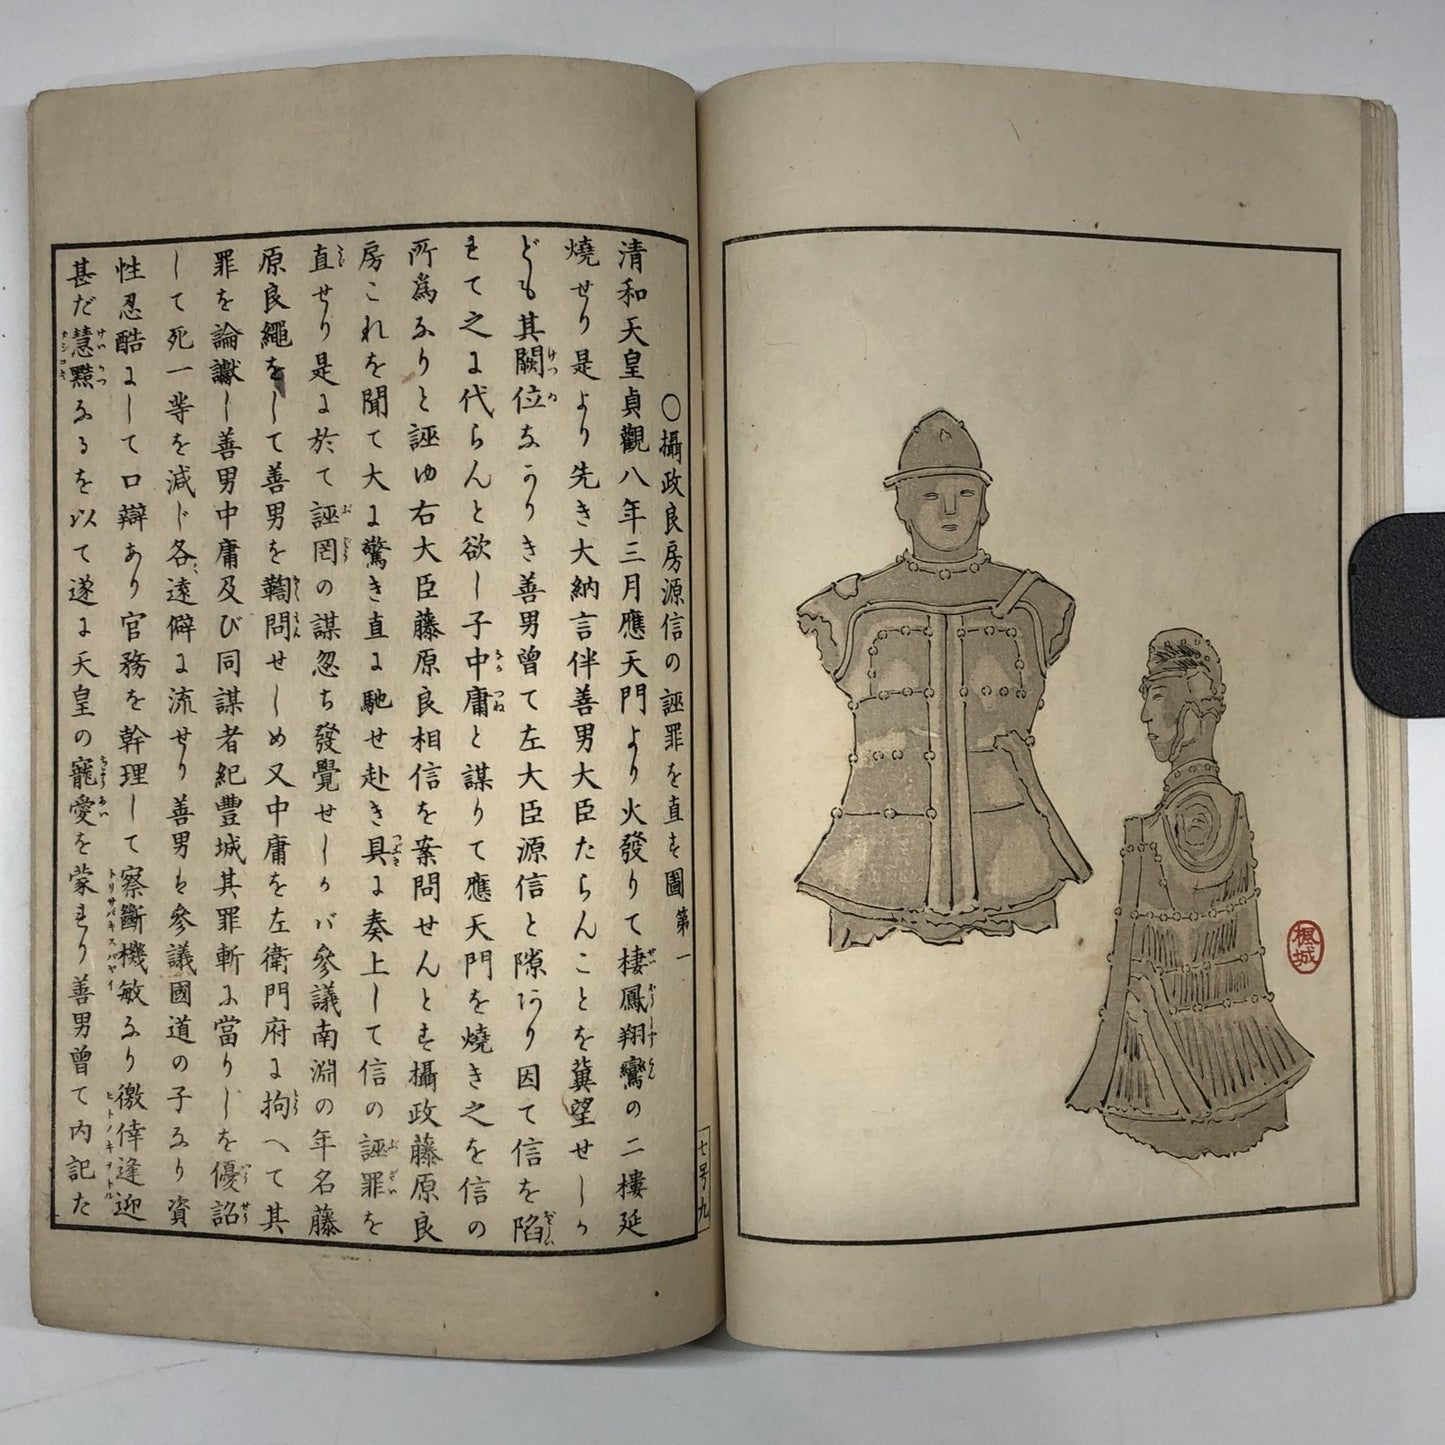 楓城
○攝政良房源信の誣罪を直す圖第一
清和天皇貞觀八年三月應天門より火發りて棲鳳翔鸞の二樓延
燒せり是より先き大納言伴善男大臣たらんことを冀望せしか
ども其闕位なかりき善男曾て左大臣源信と隙あり因て信を陷
れて之に代らんと欲し子中庸と謀りて應天門を燒き之を信の
所爲なりと誣ゆ右大臣藤原良相信を案問せんとす攝政藤原良
房これを聞て大に驚き直に馳せ赴き具に奏上して信の誣罪を
直せり是に於て誣罔の謀忽ち發覺せしかバ參議南淵の年名藤
原良繩をして善男を鞫問せしめ又中庸を左衛門府に拘へて其
罪を論讞し善男中庸及び同謀者紀豐城其罪斬に當りしを優詔
して死一等を減じ各遠僻に流せり善男も參議國道の子なり資
性忍酷にして口辯あり官務を幹理して察斷機敏なり徼倖逢迎
甚だ慧黠なるを以て遂に天皇の寵愛を蒙れり善男曾て内記た
七号九